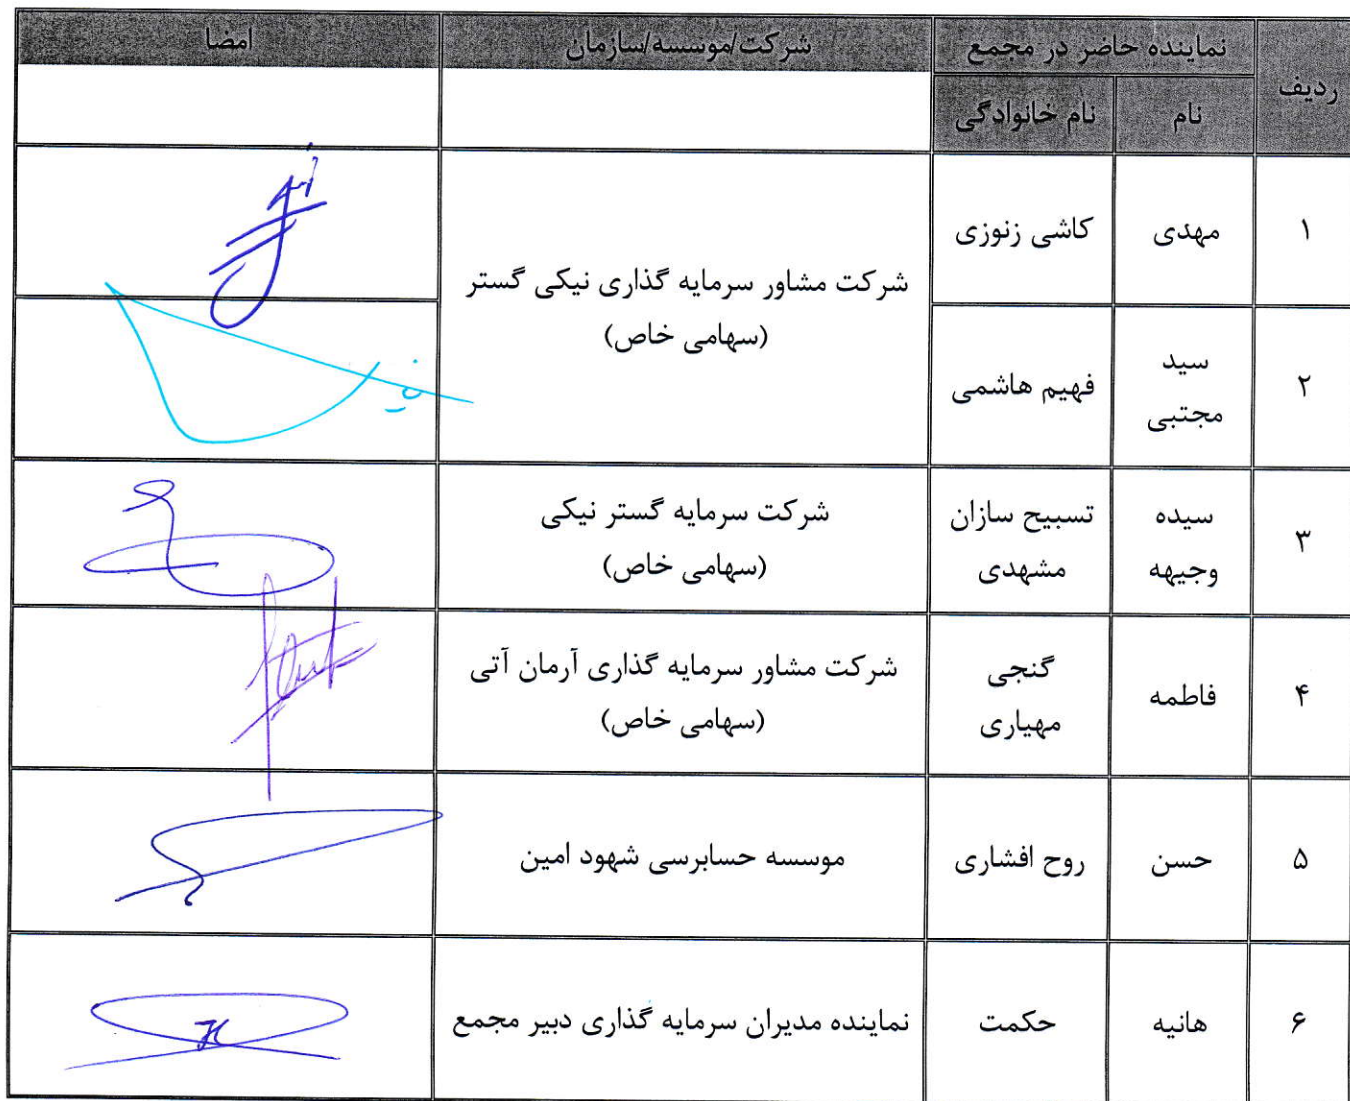 ردیف
نماینده حاضر در مجمع
شرکت/موسسه/سازمان
امضا
نام
نام خانوادگی
۱
مهدی
کاشی زنوزی
شرکت مشاور سرمایه گذاری نیکی گستر
(سهامی خاص)
۲
سید
مجتبی
فهیم هاشمی
۳
سیده
وجیهه
تسبیح سازان
مشهدی
شرکت سرمایه گستر نیکی
(سهامی خاص)
۴
فاطمه
گنجی
مهیاری
شرکت مشاور سرمایه گذاری آرمان آتی
(سهامی خاص)
۵
حسن
روح افشاری
موسسه حسابرسی شهود امین
۶
هانیه
حکمت
نماینده مدیران سرمایه گذاری دبیر مجمع